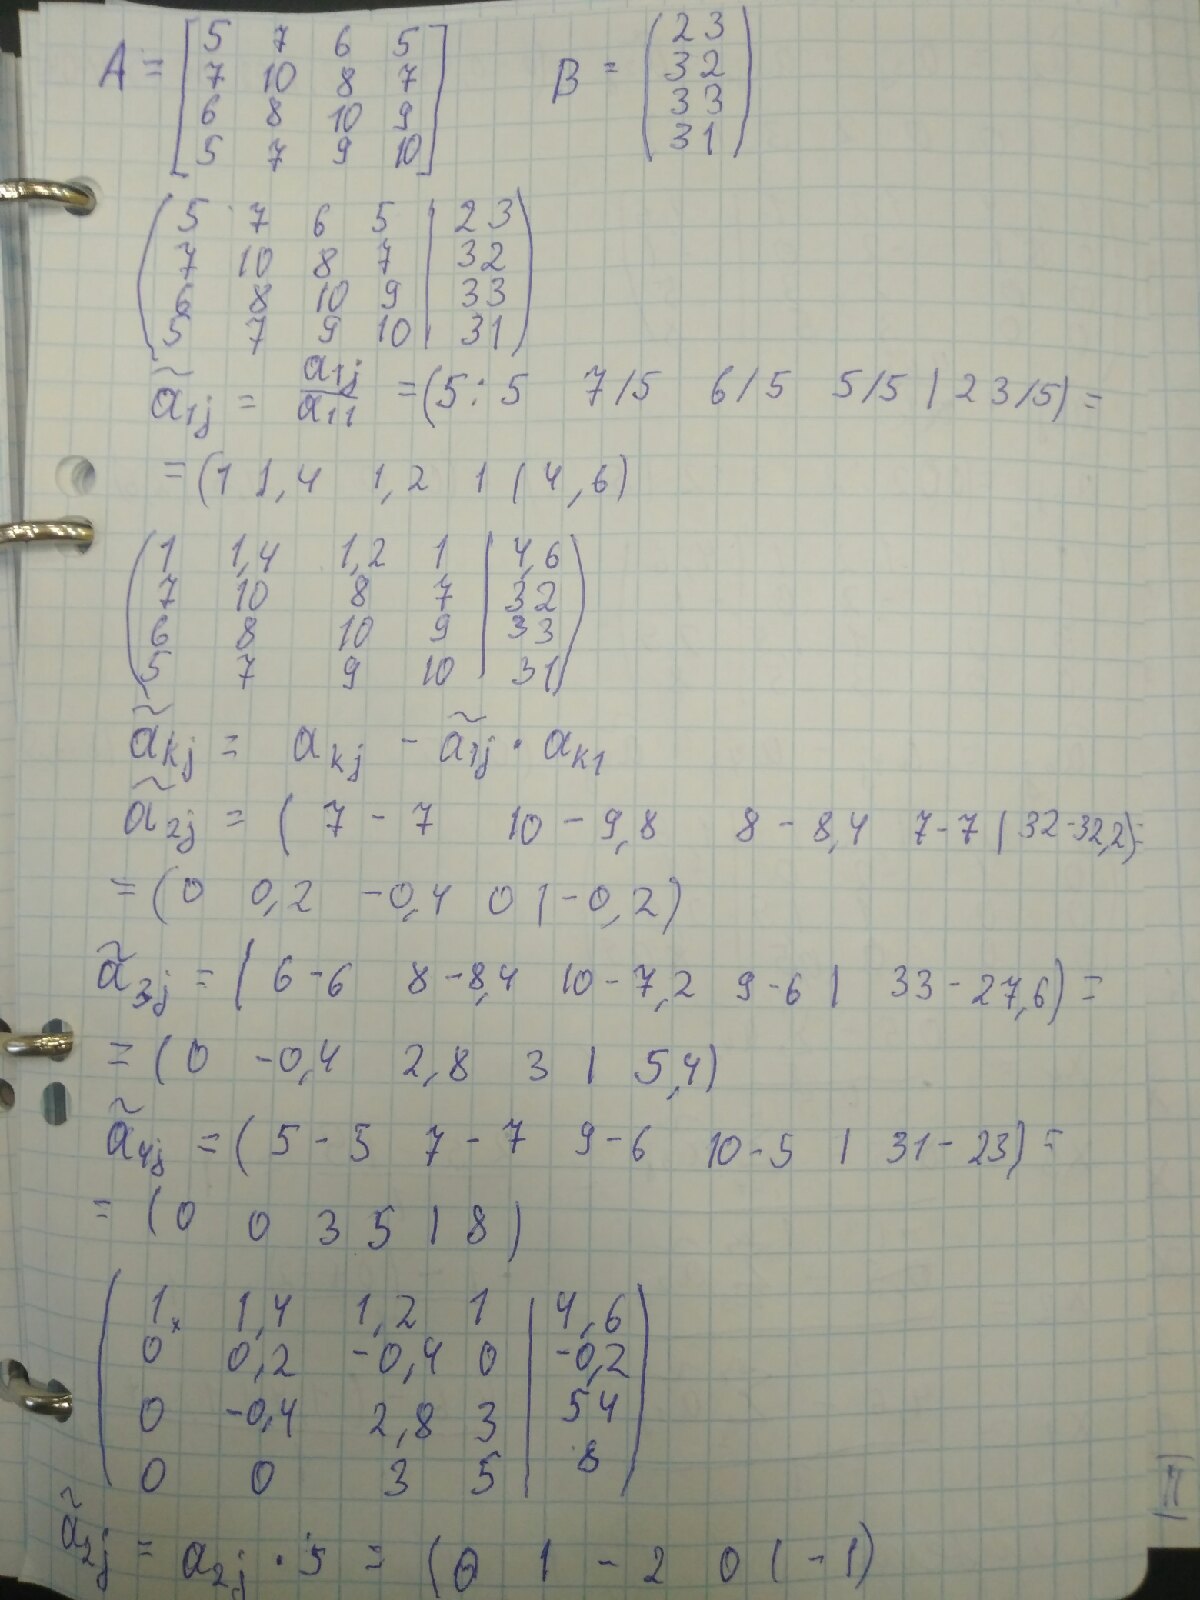 A = [5 7 6 5
7 10 8 7
6 8 10 9
5 7 9 10]
B = (23
32
33
31)
(5 7 6 5 | 23
7 10 8 7 | 32
6 8 10 9 | 33
5 7 9 10 | 31)
ã1j = a1j/a11 = (5:5 7/5 6/5 5/5 | 23/5) =
= (1 1,4 1,2 1 | 4,6)
(1 1,4 1,2 1 | 4,6
7 10 8 7 | 32
6 8 10 9 | 33
5 7 9 10 | 31)
ãkj = akj - ã1j · ak1
ã2j = (7-7 10-9,8 8-8,4 7-7 | 32-32,2) =
= (0 0,2 -0,4 0 | -0,2)
ã3j = (6-6 8-8,4 10-7,2 9-6 | 33-27,6) =
= (0 -0,4 2,8 3 | 5,4)
ã4j = (5-5 7-7 9-6 10-5 | 31-23) =
= (0 0 3 5 | 8)
(1 1,4 1,2 1 | 4,6
0 0,2 -0,4 0 | -0,2
0 -0,4 2,8 3 | 5 4
0 0 3 5 | 8)
ã2j = a2j · 5 = (0 1 -2 0 | -1)